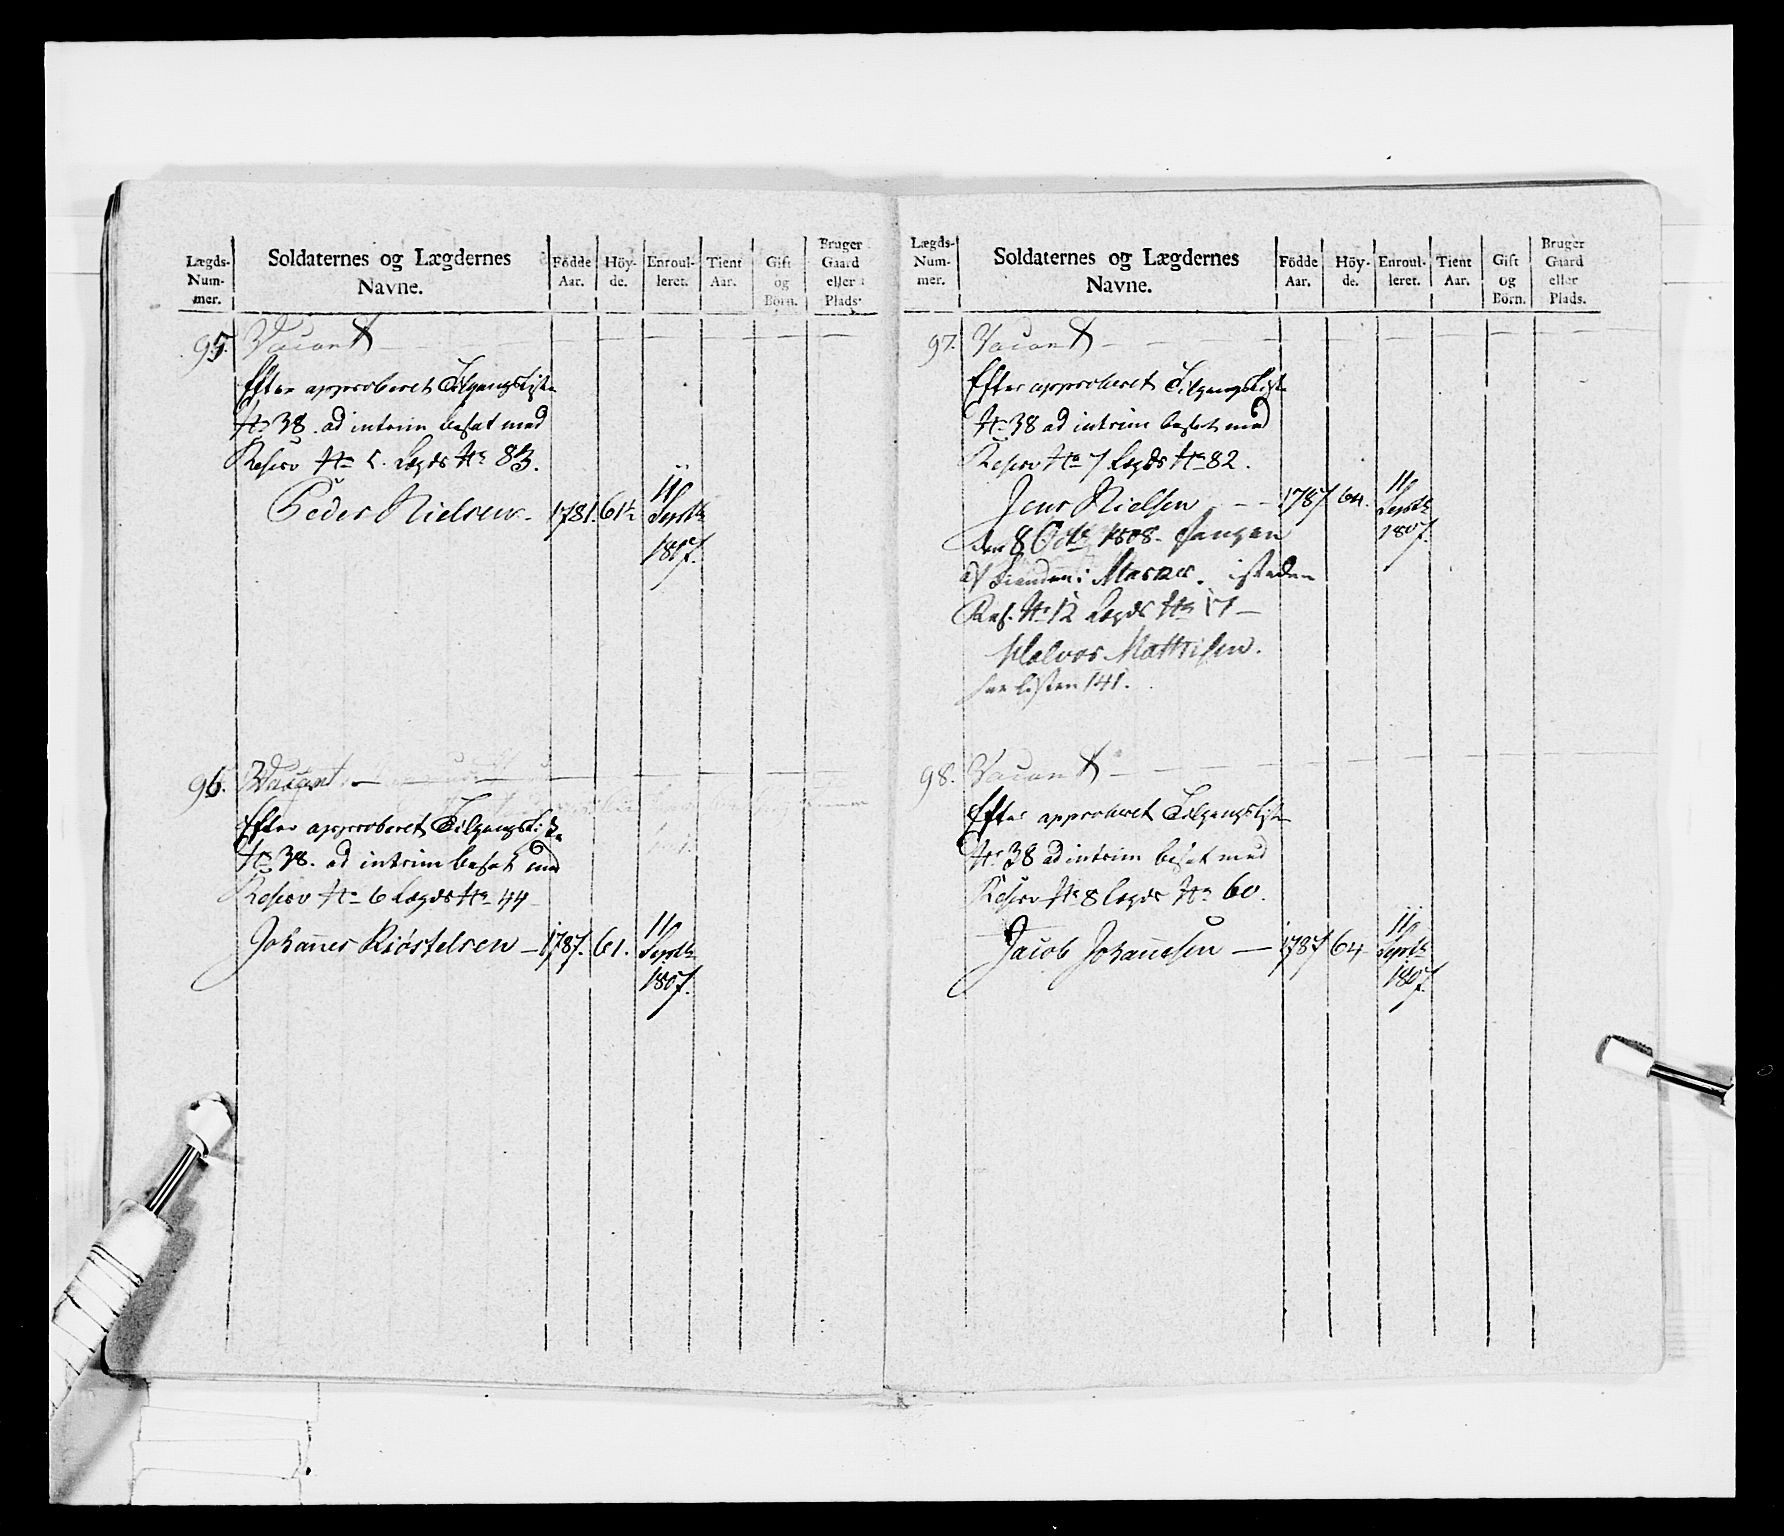 Lægds-
Num-
mer.
Soldaternes og Lægdernes
Navne.
Födde
Aar.
Höy-
de.
Enroul-
leret.
Tient
Aar.
Gift
og
Börn.
Bruger
Gaard
eller
Plads.
95. Vacant
Efter approberet Tilgangsliste
No 38. ad interim besat med
Reserv No 5. Lægds No 83.
Peder Nielsen. 1781. 61½ 11
Septbr
1807.
96. Vacant.
Efter approberet Tilgangsliste
No 38. ad interim besat med
Reserv No 6 Lægds No 44
Johannes Kiöstelsen — 1787. 61. 11
Septbr
1807.
Lægds-
Num-
mer.
Soldaternes og Lægdernes
Navne.
Födde
Aar.
Höy-
de.
Enroul-
leret.
Tient
Aar.
Gift
og
Börn.
Bruger
Gaard
eller
Plads.
97. Vacant
Efter approberet Tilgangsliste
No 38 ad interim besat med
Reserv No 7 Lægds No 82.
Jens Nielsen 1787 64. 11
Septbr
1807.
den 8 Octr 1808. fangen
af Fienden i isteden
Res. No 12 Lægds No 17 —
Halvor Mathisen.
see listen 141.
98. Vacant
Efter approberet Tilgangsliste
No 38 ad interim besat med
Reserv No 8 Lægds No 60.
Jacob Johannesen — 1787 64 11
Septbr
1807.